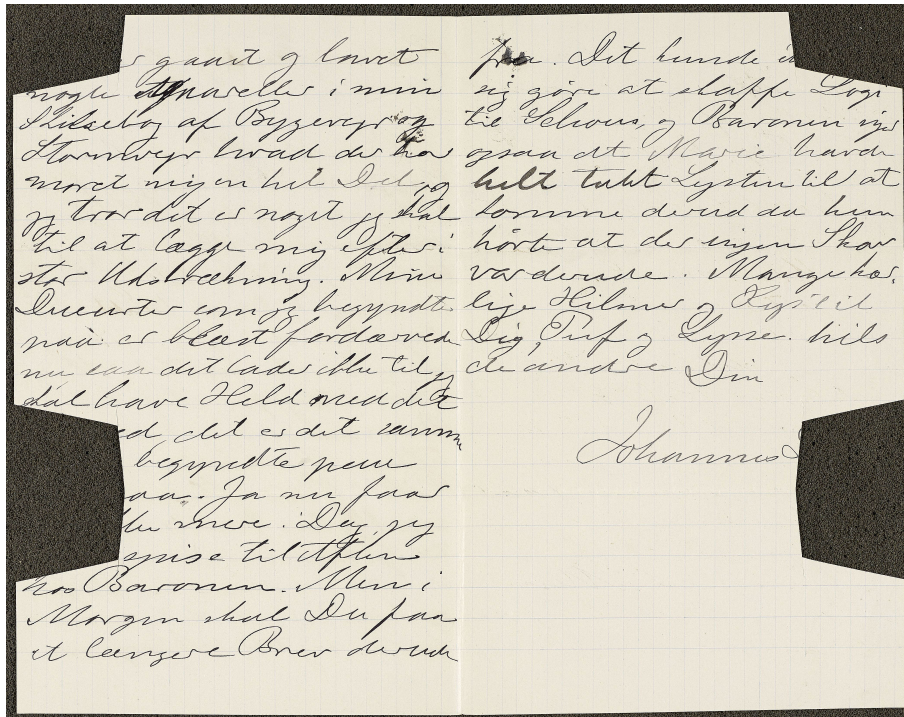 gaaet og lavet
nogle Akvareller i min
Skissebog af Bygevejr og
Stormvejr hvad der har
moret mig en hel Del, og
jeg tror det er noget jeg skal
til at lægge mig efter i
stor Udstrækning. Mine
som jeg begyndte
paa er blæst fordærvede
nu saa det lader ikke til jeg
skal have Held med det
ed, det er det samme
begyndte paa
aa. Ja nu faar
ke mere. Dag, jeg
spise til Aften
hos Baronen. Men i
Morgen skal Du faa
et længere Brev derude
fra. Det kunde
sig göre at skaffe Logi
til Schous, og Baronen
ogsaa at Marie havde
helt tabt Lysten til at
komme derud da hun
hörte at der ingen Skov
var derude. Mange kær-
lige Hilsner og Kys til
Dig, Puf og Lysse. hils
de andre Din
Johannes